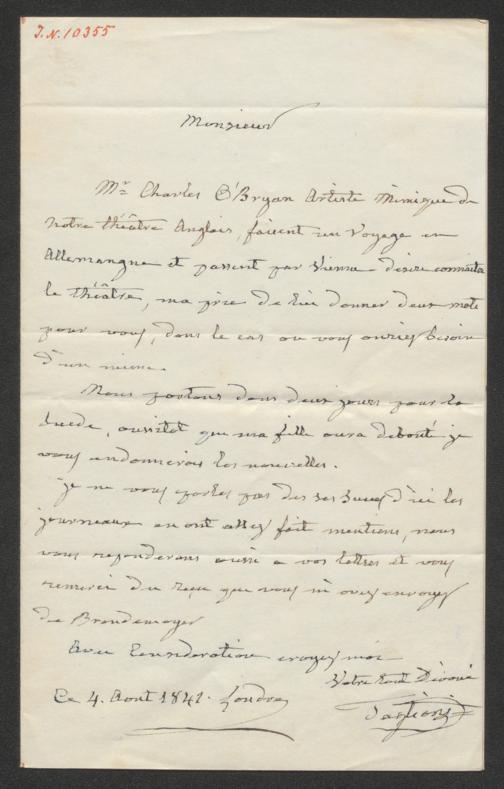 J.N. 10355
Monsieur
Mr. Charles O'Bryan Artiste Mimique de
notre théâtre Anglais, faisent un Voyage en
Allemangne et passent par Vienne désire connaitre
le théâtre, ma prié de lui donner deux mots
pour vous, dans le cas ou vous auriez besoin
d'un mime.
Nous partons dans deux jours pour la
Suede, aussitot que ma fille aura debouté je
vous endonnerai les nouvelles.
je ne vous parles pas des ses succes d'ici les
journeaux en ont assez fait mentions, nous
vous reponderons aussi a vos lettres et vous
remerci du reçu que vous m'avez envoyez
de Brandemayer
Avec Consideration croyez moi
Votre tout Dévoué
Le 4. Aout 1841. Londres
Taglioni